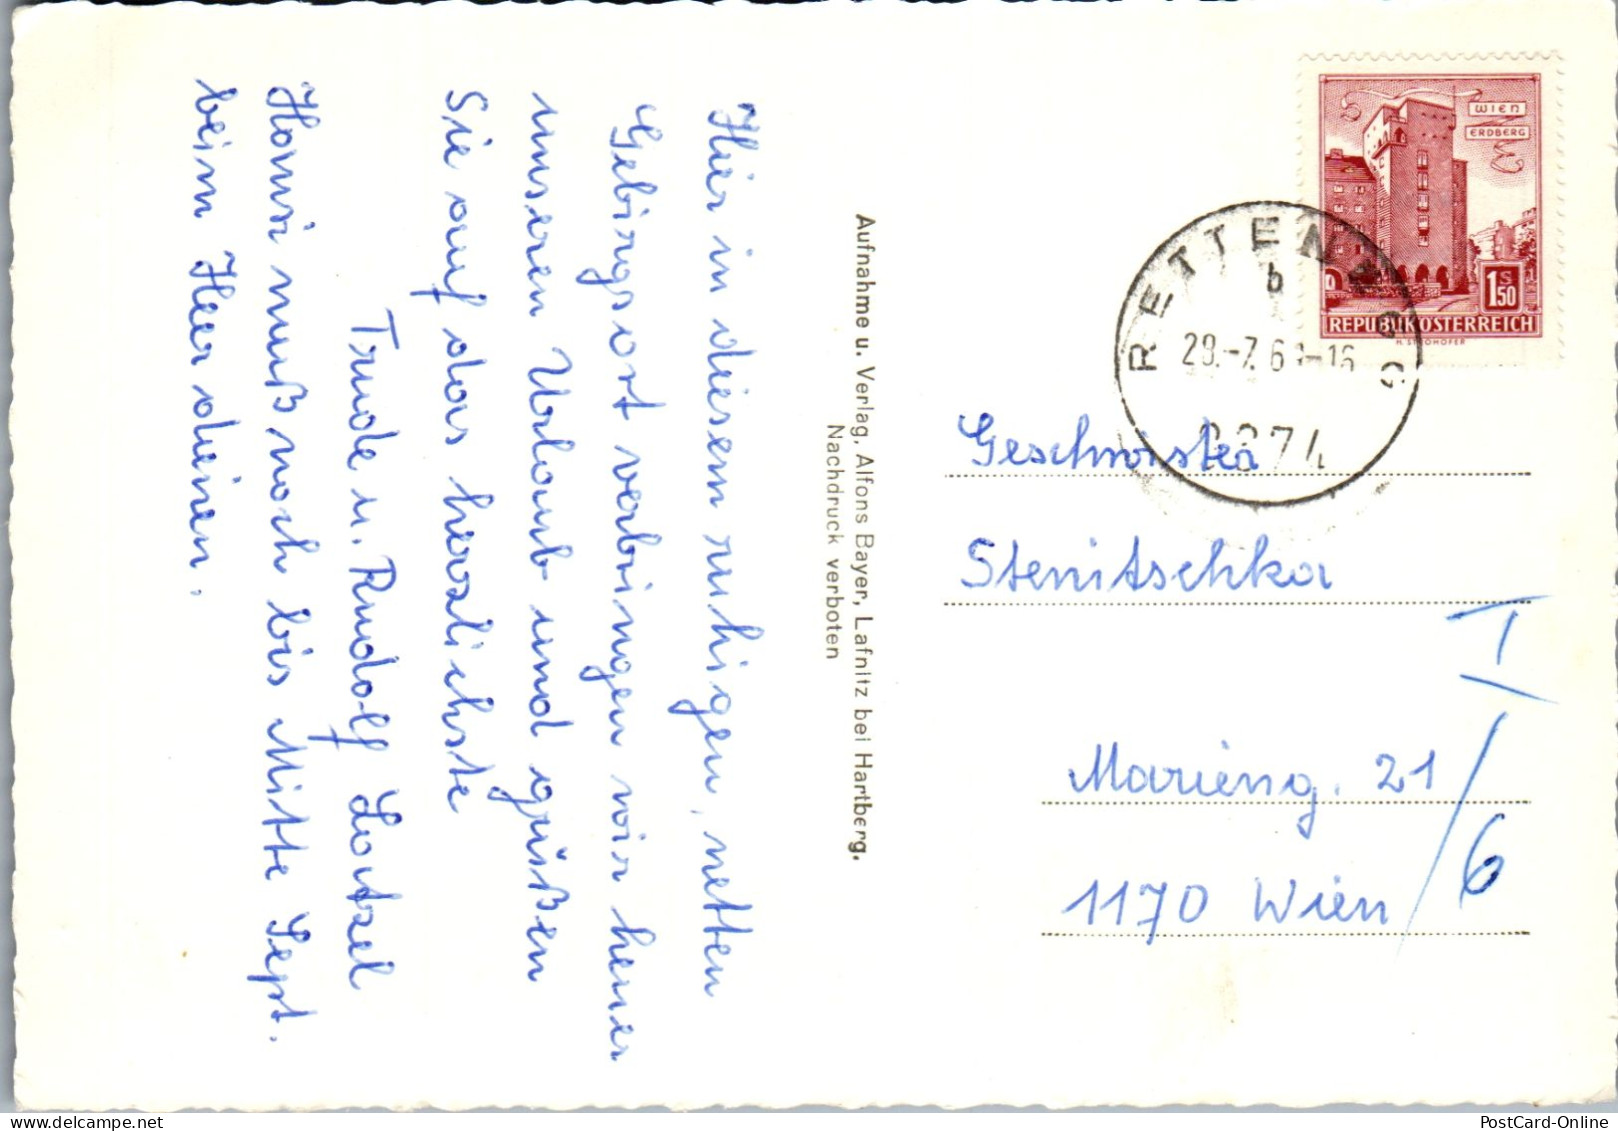 Hier in diesem ruhigen, netten
Gebirgsort verbringen wir heuer
unseren Urlaub und grüßen
Sie auf das herzlichste
Trude u. Rudolf Latzel
Hansi muß noch bis Mitte Sept.
beim Heer dienen.
Aufnahme u. Verlag, Alfons Bayer, Lafnitz bei Hartberg.
Nachdruck verboten
WIEN
ERDBERG
1 S 50
REPUBLIK ÖSTERREICH
RETTENEGG
b
29.-7.6 -16
8674
Geschwister
Stenitschka
I
Marieng. 21
/6
1170 Wien
PostCard-Online